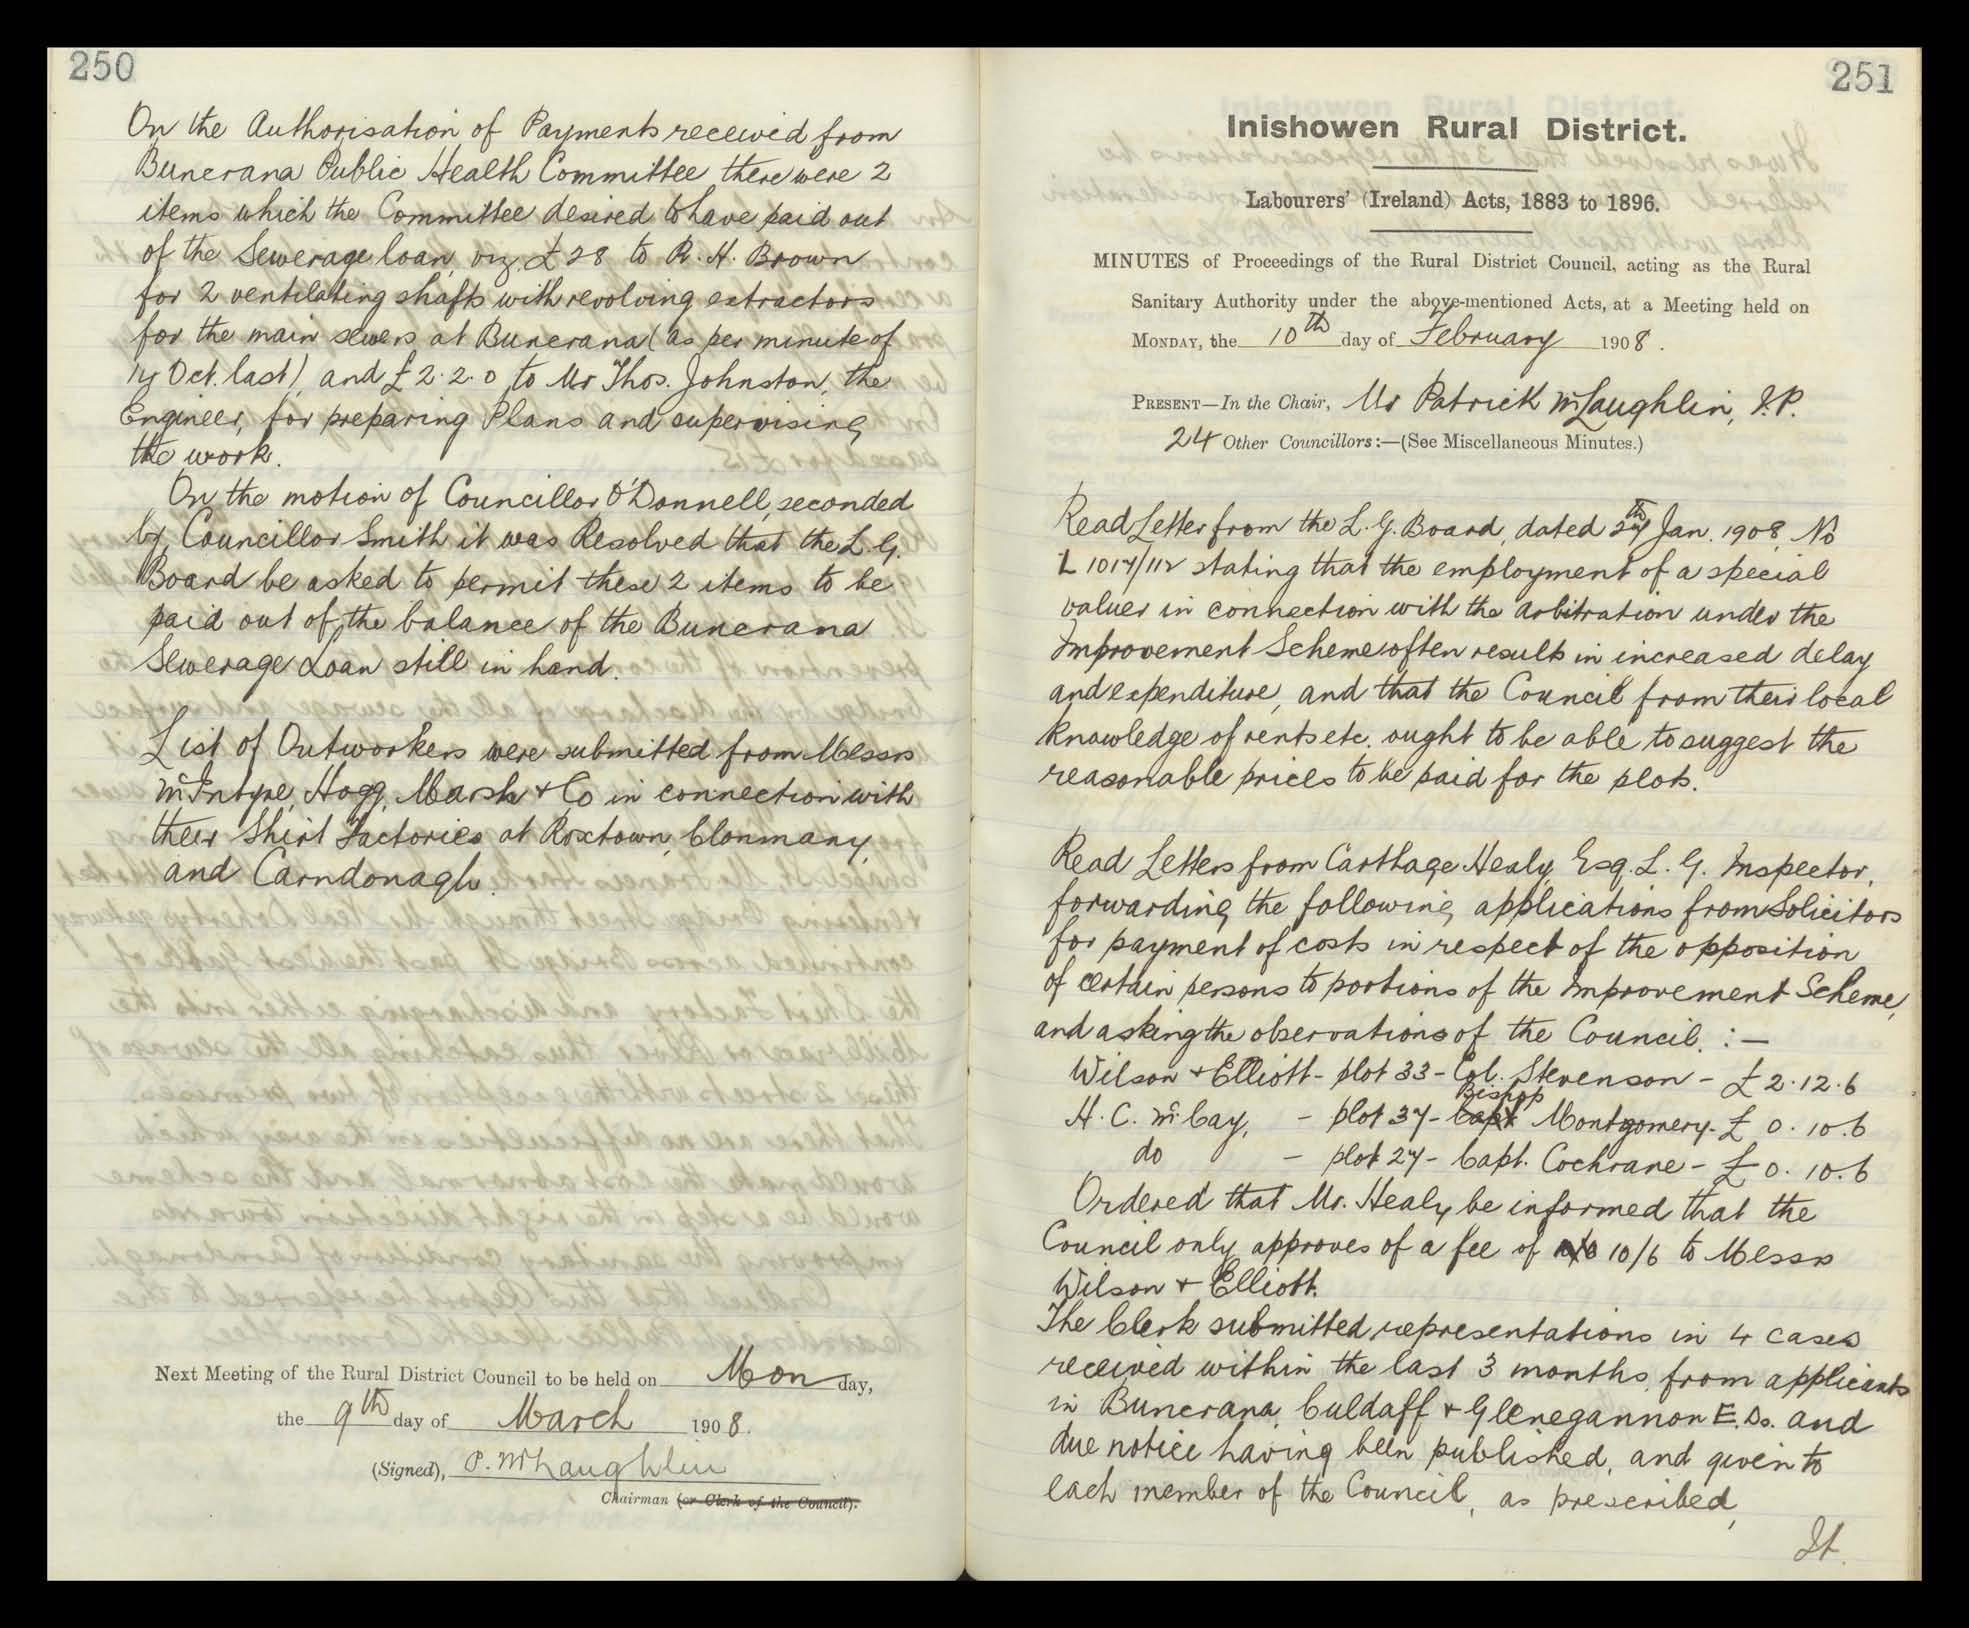 250
On the Authorisation of Payments received from
Buncrana Public Health Committee there were 2
items which the Committee desired to have paid out
of the Sewerage loan, viz. £28 to R. H. Brown
for 2 ventilating shafts with revolving extractors
for the main sewers at Buncrana (as per minute of
Oct. last), and £2.2.0 to Mr Thos. Johnston, the
Engineer, for preparing Plans and supervising
the work.
On the motion of Councillor O'Donnell, seconded
by Councillor Smith it was Resolved that the L. G.
Board be asked to permit these 2 items to be
paid out of the balance of the Buncrana
Sewerage Loan still in hand.
List of Outworkers were submitted from Messrs
McIntyre, Hogg, Marsh & Co in connection with
their Shirt Factories at Roxtown, Clonmany,
and Carndonagh.
Next Meeting of the Rural District Council to be held on Monday,
the 9th day of March 1908.
(Signed), P. McLaughlin
Chairman (or Clerk of the Council).
251
Inishowen Rural District.
Labourers' (Ireland) Acts, 1883 to 1896.
MINUTES of Proceedings of the Rural District Council, acting as the Rural
Sanitary Authority under the above-mentioned Acts, at a Meeting held on
MONDAY, the 10th day of February 1908.
PRESENT—In the Chair, Mr Patrick McLaughlin, J.P.
24 Other Councillors:—(See Miscellaneous Minutes.)
Read Letter from the L. G. Board, dated 27th Jan. 1908, No
L 1017/112 stating that the employment of a special
valuer in connection with the arbitration under the
Improvement Scheme often results in increased delay
and expenditure, and that the Council from their local
knowledge of rents etc. ought to be able to suggest the
reasonable prices to be paid for the plots.
Read Letters from Carthage Healy, Esq. L. G. Inspector,
forwarding the following applications from Solicitors
for payment of costs in respect of the opposition
of certain persons to portions of the Improvement Scheme,
and asking the observations of the Council. :—
Wilson & Elliott - plot 33 - Col. Stevenson - £2.12.6
Bishop
H. C. McCay, - plot 37 - Capt Montgomery - £0.10.6
do - plot 27 - Capt. Cochrane - £0.10.6
Ordered that Mr. Healy be informed that the
Council only approves of a fee of 10/6 to Messrs
Wilson & Elliott.
The Clerk submitted representations in 4 cases
received within the last 3 months, from applicants
in Buncrana, Culdaff & Glenegannon E.Ds. and
due notice having been published, and given to
each member of the Council, as prescribed,
It